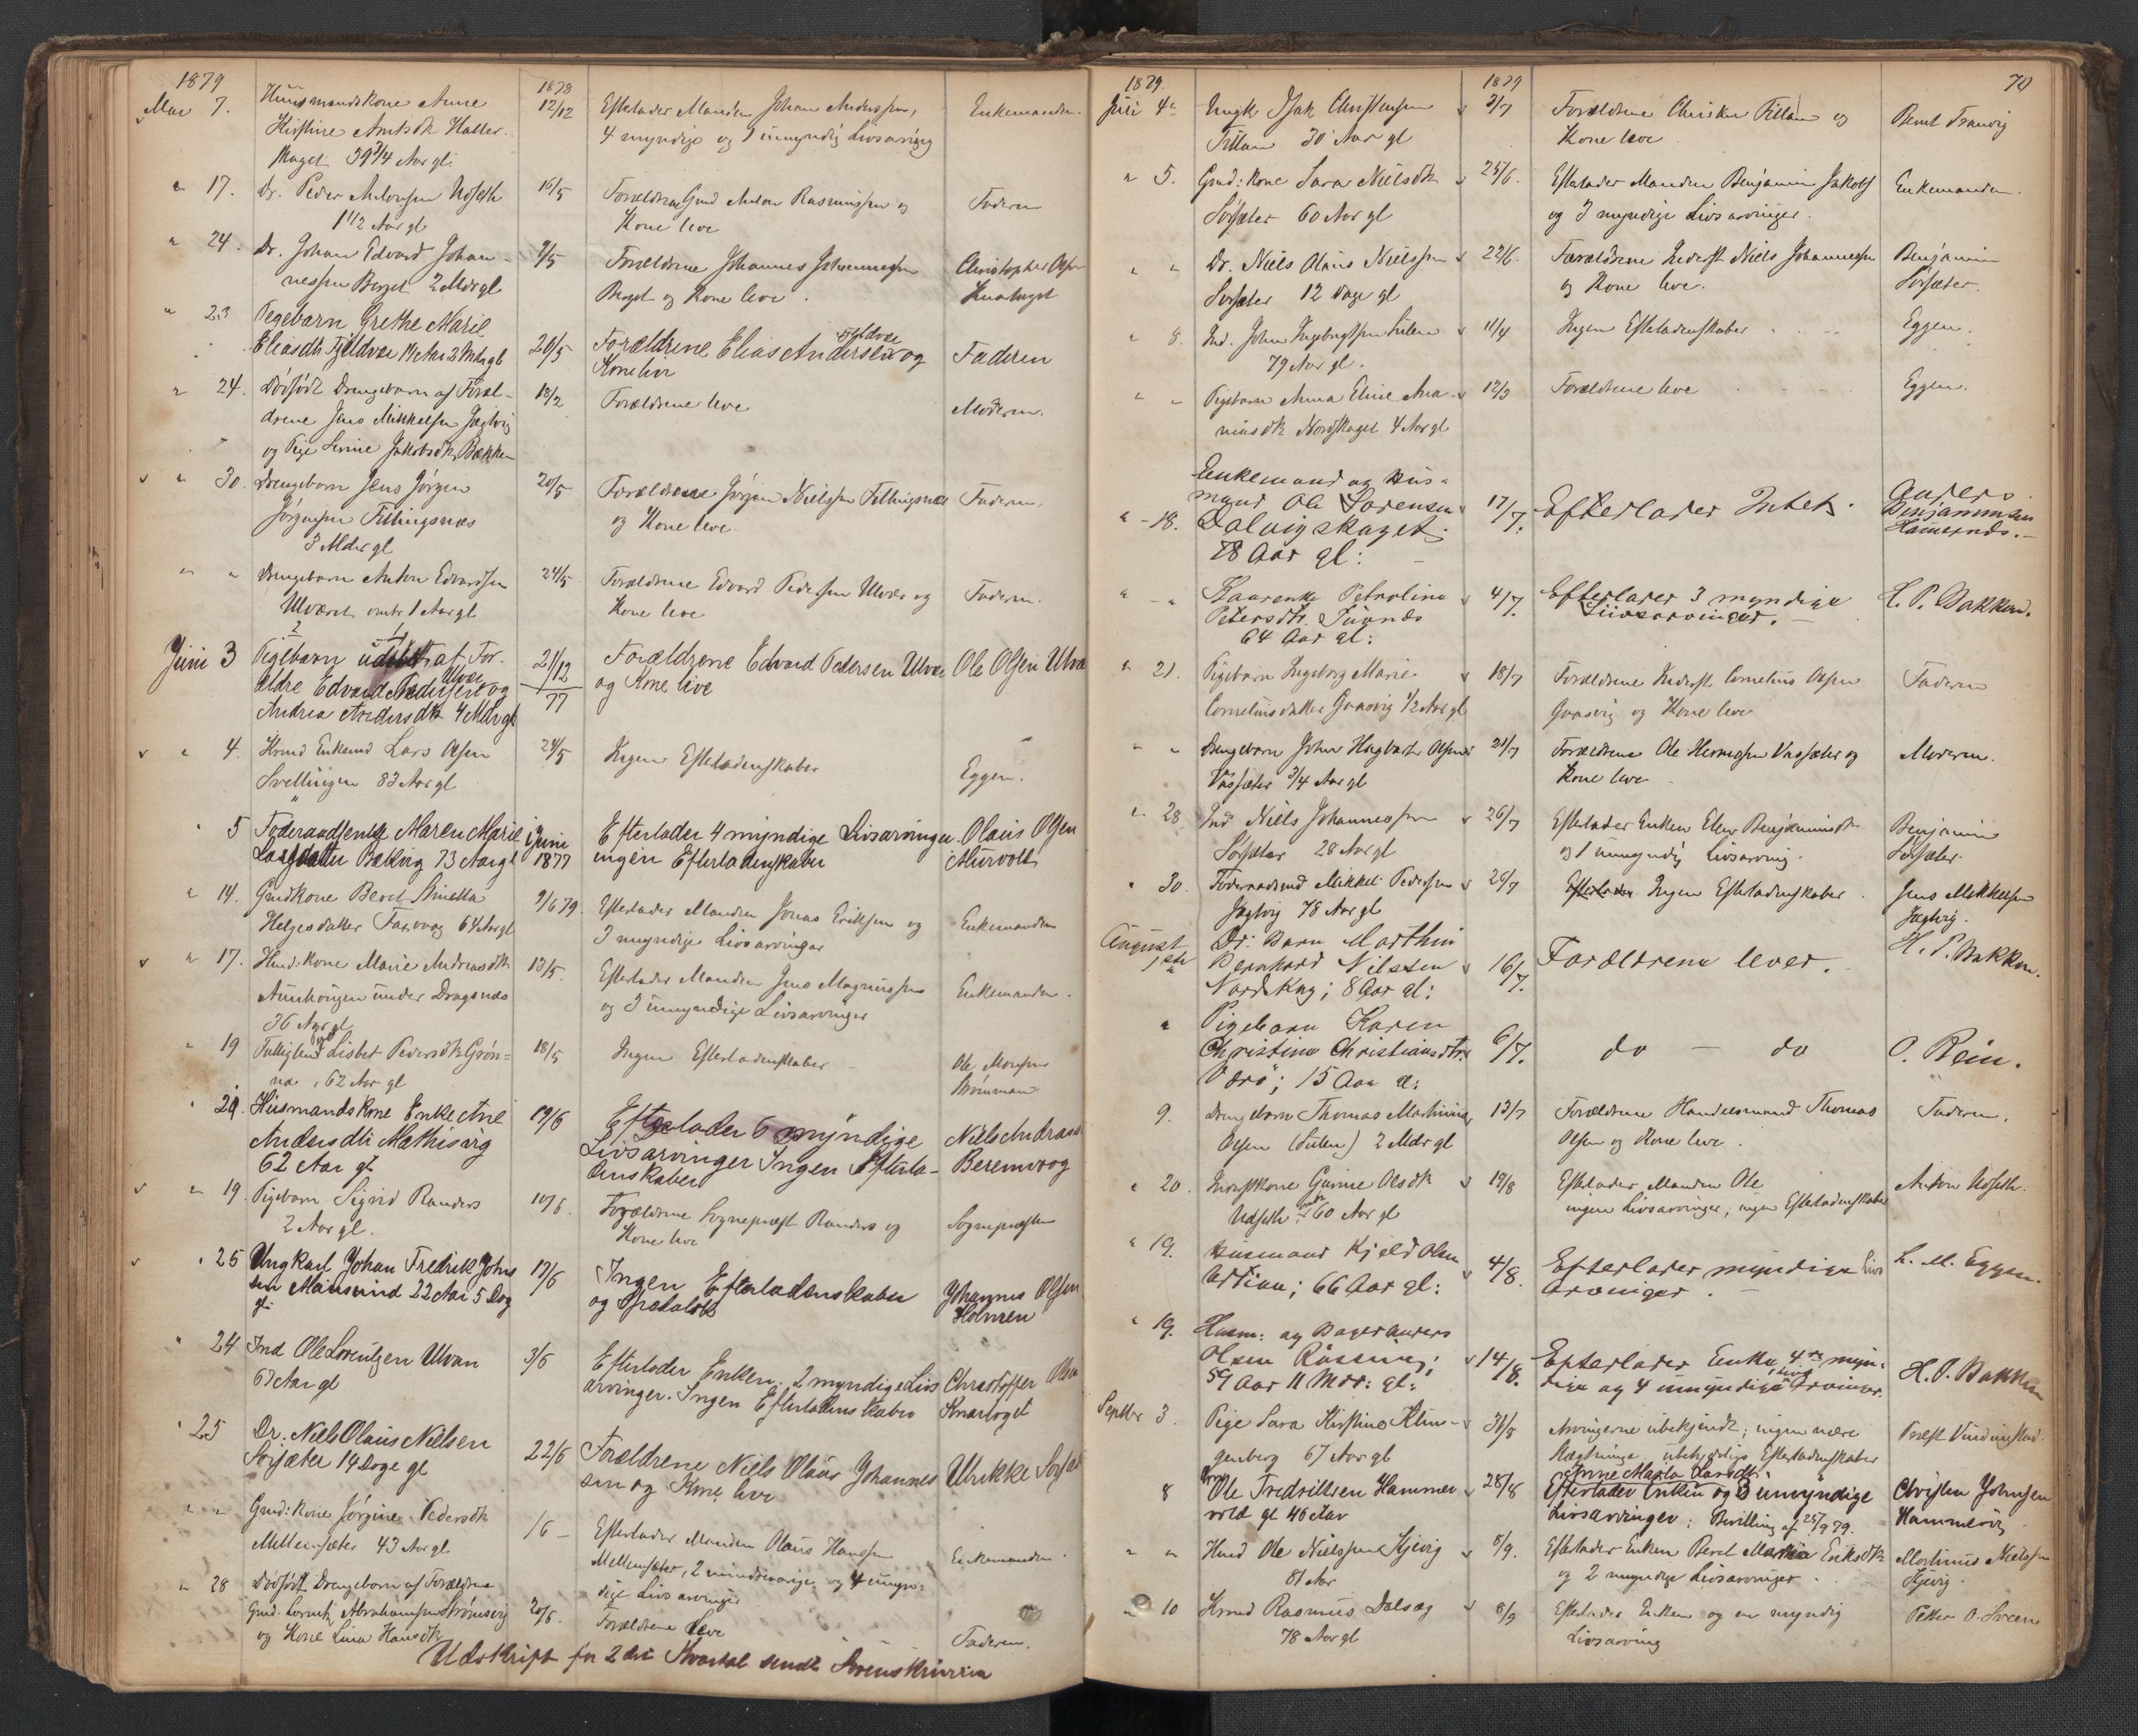 1879
1878
Mai 7. Huusmandskone Anne 12/12 Efterlader Manden Johan Andersen, Enkemanden.
Kirstine Arntsdtr Halten
4 myndige og 1 umyndig Livsarving
skaget 39 3/4 Aar gl:
" 17. Dr. Peder Antonsen Uoseth 16/5 Forældrene Gmd Anton Rasmussen og Faderen
1 1/2 Aar gl Kone leve
" 24. Dr. Johan Edvard Johan- 9/5 Forældrene Johannes Johannessen Christopher Olsen
nessen Berget 2 Mdr gl Berget og Kone leve. Knarlaget
" 23 Pigebarn Grethe Marie
Eliasdtr Fjeldvær 14 Aar 2 Mdr gl 20/5 Forældrene Elias Andersen Fjeldvær og Faderen
Kone leve
" 24. Dødfødt Drengebarn af Foræl- 18/2 Forældrene leve Moderen.
drene Jens Mikkelsen Jægtvig
og Pige Serine Jakobsdtr Bækken
v " 30. Drengebarn Jens Jørgen 20/5 Forældrene Jørgen Nielsen Fillingsnæs Faderen.
Jørgensen Fillingsnæs og Kone leve
3 Mdr gl
" " Drengebarn Anton Edvardsen 24/5 Forældrene Edvard Pedersen Ulvær og Faderen.
Ulværet omtr 1 Aar gl Kone leve
Juni 3 Pigebarn udøbt af For- 21/12 Forældrene Edvard Pedersen Ulvær Ole Olsen Ulvær
ældre Edvard Pedersen Ulvær og 77 og Kone leve
Andrea Andersdtr 4 Mdr gl
v " 4. Kmd Enkemd Lars Olsen 24/5 Ingen Efterladenskaber Eggen.
Svellingen 83 Aar gl
" 5 Føderaadsenke Maren Marie Juni Efterlader 4 myndige Livsarvinger Olaus Olsen
Larsdatter Bækvig 73 Aar gl 1877 ingen Efterladenskaber Aurvold
" 14. Gmdkone Beret 9/6 79. Efterlader Manden Jonas Eriksen og Enkemanden
Helgesdatter 64 Aar gl 3 myndige Livsarvinger
v " 17. Hmd: Kone Marie Andreasdtr 13/5. Efterlader Manden Jens Magnussen Enkemanden.
Aunhougen under Dragsnæs og 3 umyndige Livsarvinger
36 Aar gl
" 19 Fattiglem Pige Lisbet Pedersdtr Grøn- 18/5 Ingen Efterladenskaber Ole Monsen
na, 62 Aar gl
" 20. Husmands Kone Enke Ane 19/6 Efterlader 6 myndige Niels Andreas
Andersdtr Mathisvig Livsarvinger Ingen Efterla- Beremvog
62 Aar gl denskaber
v " 19. Pigebarn Sigrid Randers 10/6. Forældrene Sognepræst Randers og Sognepræsten
2 Aar gl. Kone leve
v " 25 Ungkarl Johan Fredrik Johns 17/6 Ingen Efterladenskaber Johannes Olsen
sen Mausund 22 Aar 5 Dag og Spedalsk Holmen
gl.
" 24 Ind Ole Lorentzen Ulvan 3/6 Efterlader Enken. 2 myndige Livs Christoffer Olsen
67 Aar gl arvinger. Ingen Efterladenskaber Knarlaget
" 25 Dr. Niels Olaus Nielsen 22/6 Forældrene Niels Olaus Johannes Ulrikke Sørsæter
Sørsæter 14 Dage gl sen og Kone leve
" " Gmd: Kone Jørgine Pedersdtr /6 - Efterlader Manden Olaus Hansen Enkemanden.
Mellemsæter 43 Aar gl Mellemsæter, 2 mindreaarige og 4 umyn-
dige Livsarvinger
" 28 Dødfødt Drengebarn af Forældrene 20/6. Forældrene leve Faderen.
Gmd: Lornts Abrahamsen Strømsvig
og Kone Lina Hansdtr
Udskrift for 2det Kvartal sendt Sorenskriveren
1879. 1879 70
Juli 4. Ungk Isak Christensen v 3/7 Forældrene Christen Titlan og Bernt Tranvig
Titlan 30 Aar gl Kone leve
" 5. Gmd: Kone Sara Nielsdtr v 25/6. Efterlader Manden Benjamin Jakobs Enkemanden.
Sørsæter 60 Aar gl og 3 myndige Livsarvinger.
" " Dr. Niels Olaus Nielssen v 22/6. Forældrene Inderst Niels Johannessen Benjamin
Sørsæter 12 Dage gl og Kone leve. Sørsæter.
" 8. Ind. John Ingebrigtsen Sulen v 11/4 Ingen Efterladenskaber Eggen.
79 Aar gl.
" " Pigebarn Anna Elise Ana- v 12/3 Forældrene leve Eggen.
niasdtr Nordskaget 4 Aar gl
Enkemand og Hus-
" - 18. mand Ole Sørensen v 17/7. Efterlader Intet. Anders
Dalvigskaget. Benjaminsen
78 Aar gl: Hammernds.
" " Kaarenke Petroline v 4/7. Efterlader 3 myndige H. P. Bakken.
Petersdtr. Suunds Livsarvinger.
64 Aar gl:
" 21. Pigebarn Ingeborg Marie v 18/7 Forældrene Inderst Cornelius Olsen Faderen
Corneliusdatter Gaasvig 1/2 Aar gl Gaasvig og Kone leve
" " Drengebarn Johan Hagbart Olsen v 21/7 Forældrene Ole Hermansen Vassæter og Moderen.
Vassæter 3/4 Aar gl Kone leve
" 28. Ind Niels Johannessen v 26/7 Efterlader Enken Elen Benjaminsdtr Benjamin
Sørsæter 28 Aar gl og 1 umyndig Livsarving. Sørsæter.
" 30. Føderaadsmd Mikkel Pedersen v 24/7 Ingen Efterladenskaber. Jens Mikkelsen
Jægtvig 78 Aar gl Jægtvig.
August
1ste Dr: Barn Marthin v 16/7. Forældrene lever. H. P. Bakken.
Bernhard Nilssen
Nordskag; 8 Aar gl:
" Pigebarn Karen 6/7. do — do O. Rein.
Christine Christiansdtr.
Værø; 15 Aar gl:
9. Drengebarn Thomas Martinius 13/7 Forældrene Handelsmand Thomas Faderen.
Olsen (Sulen) 2 Mdr gl Olsen og Kone leve.
" 20. Inderstkone Gurine Olsdtr v 19/8 Efterlader Manden Ole Anton Uoseth.
Udseth 60 Aar gl ingen Livsarvinger, ingen Efterladenskaber
" 19. Husmand Kjeld Olsen v 4/8. Efterlader myndige Livs L. M. Eggen.
Ørtian; 66 Aar gl: arvinger.
" 19. Husm: og Bager Anders
Olsen Røssving; v 14/8. Efterlader Enke, 4re myn- H. P. Bakken
59 Aar 11 Mdr: gl: dige og 4 umyndige Livsarvinger.
Septbr 3. Pige Sara Kirstine Klin- v 31/8 Arvingerne ubekjendt; ingen nære Præst
genberg 67 Aar gl Slægtninge ubetydelige Efterladenskaber
Anne Marta Larsdtr.
8 Ole Fredriksen Hammer v 28/8 Efterlader Enken og 3 umyndige Christen Johnsen
vold gl 46 Aar Livsarvinger; Bevilling af 25/9 79. Hammervig
" " Hmd Ole Nielssen Kjervig v 5/9. Efterlader Enken Beret Martha Eriksdtr Martinus Nielssen
81 Aar og 2 myndige Livsarvinger. Kjervig.
" 10 Kmd Rasmus Dalsæg v 8/9 Efterlader Enken og en myndig Petter O. Sveen
78 Aar gl Livsarving